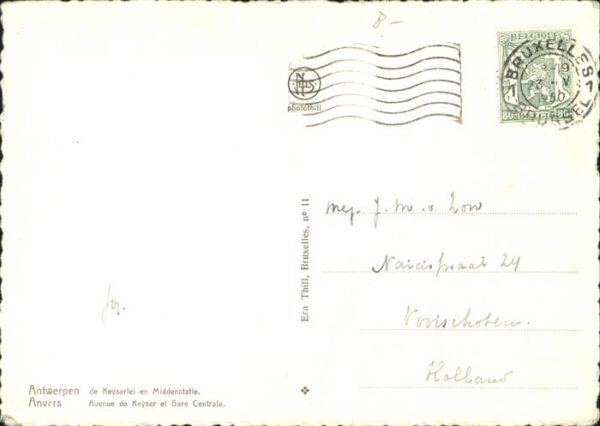 B-
BELGIQUE
BRUXELLES
1950
BRUSSEL
NELS
photothill
Ern Thill, Bruxelles, nº 11
mej. J. M. v. Low
Narcisstraat 24
Voorschoten.
Holland
Antwerpen de Keyserlei en Middenstatie.
Anvers Avenue de Keyser et Gare Centrale.